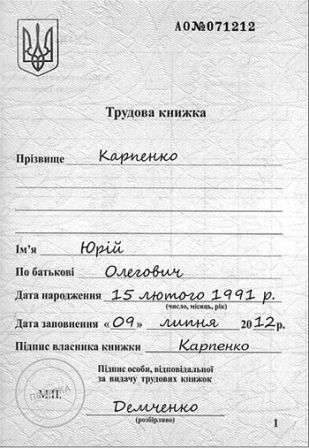 АО№071212
Трудова книжка
Прізвище Карпенко
Ім'я Юрій
По батькові Олегович
Дата народження 15 лютого 1991 р.
(число, місяць, рік)
Дата заповнення «09» липня 2012р.
Підпис власника книжки Карпенко
Підпис особи, відповідальної
за видачу трудових книжок
М.П.
Демченко
(розбірливо)
1